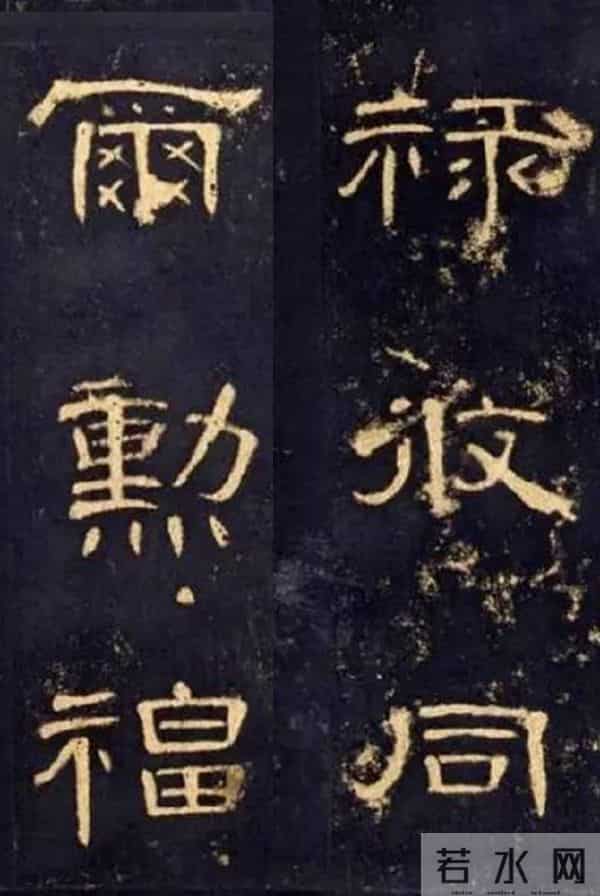 爾勳福
祿攸同
若水网